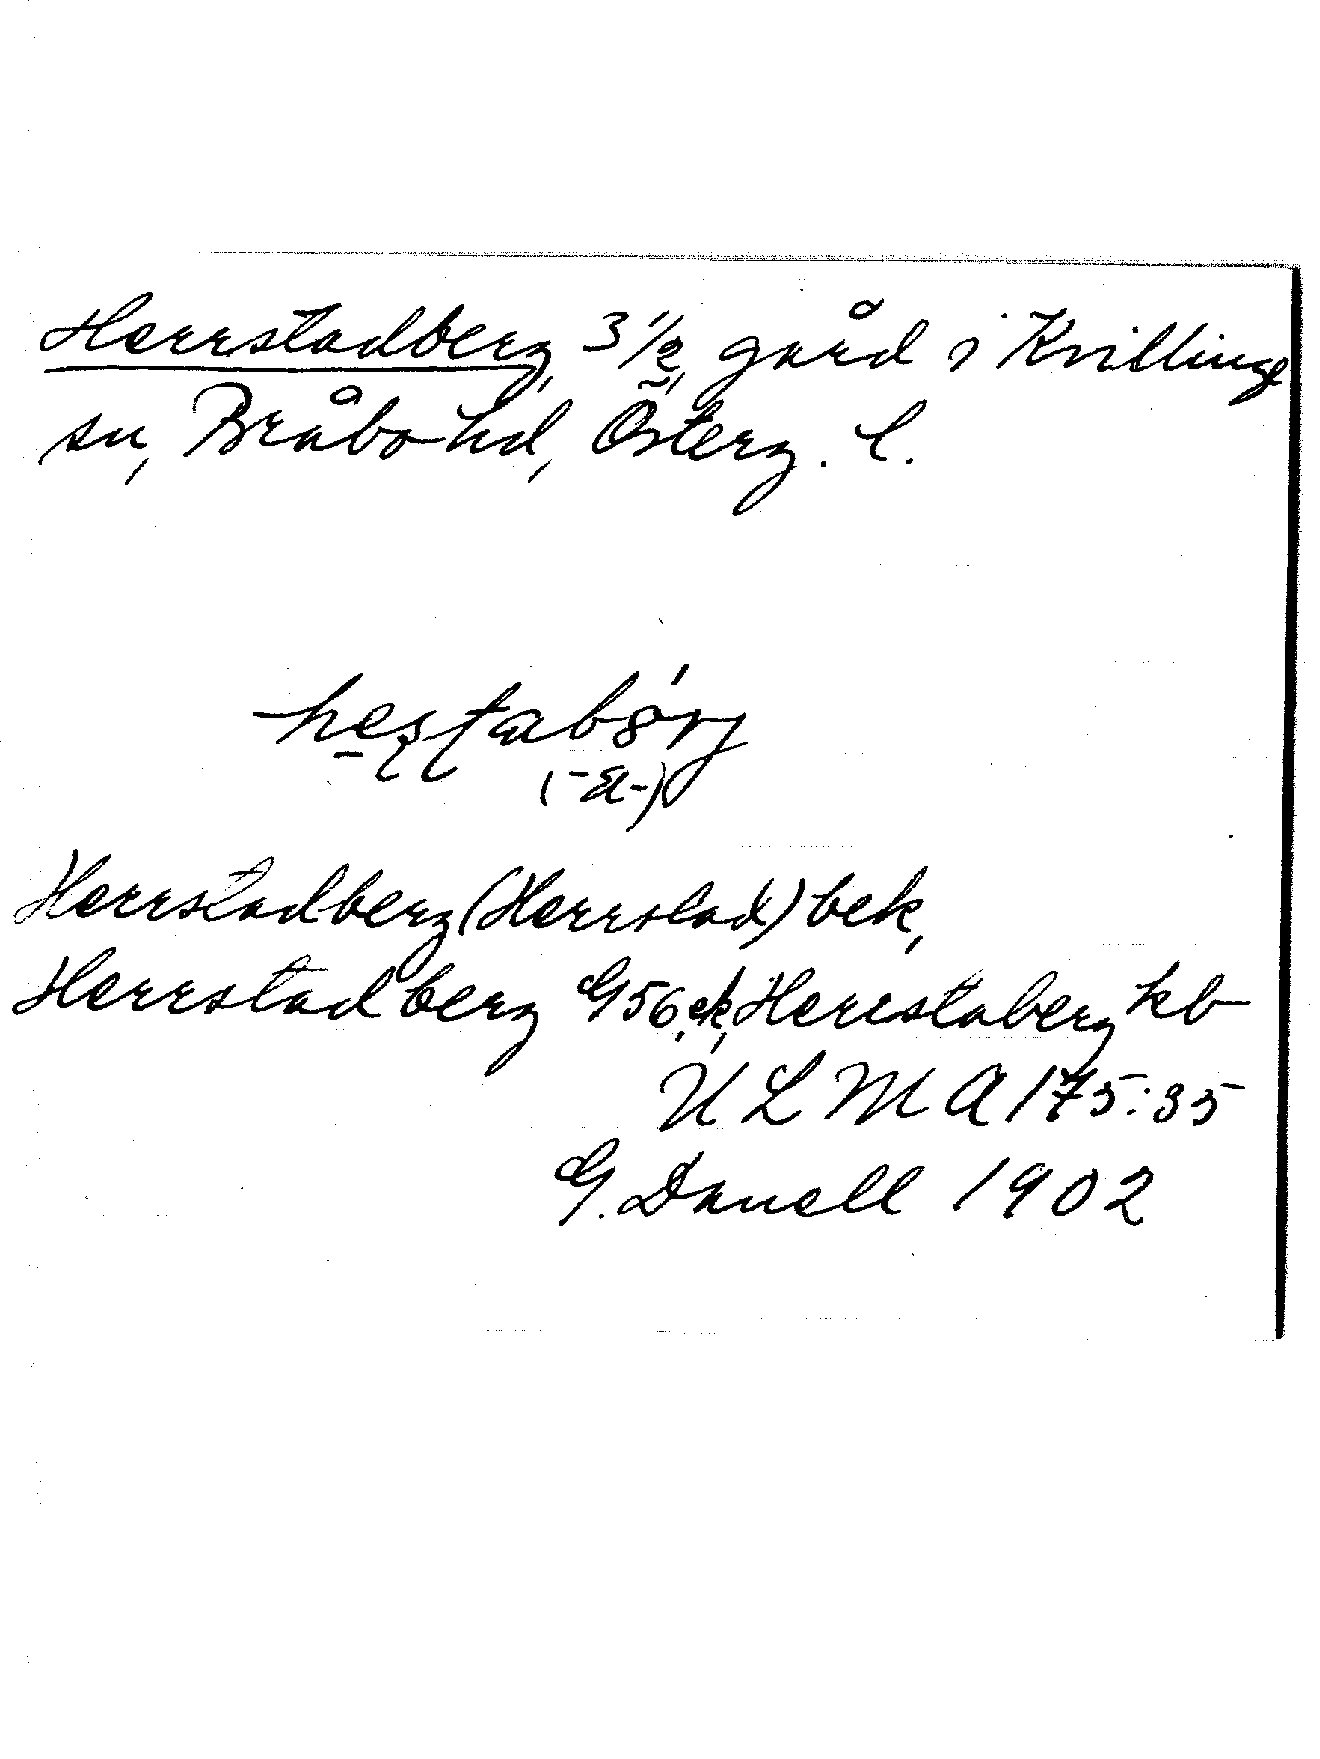 Herrstadberg, 3 1/2, gård i Kvillinge
sn, Bråbo hd, Österg. l.
(-a-)
Herrstadberg (Herrstad) bek,
Herrstadberg G56, ek, Herrstaberg kb
ULMA 175:35
G. Danell 1902